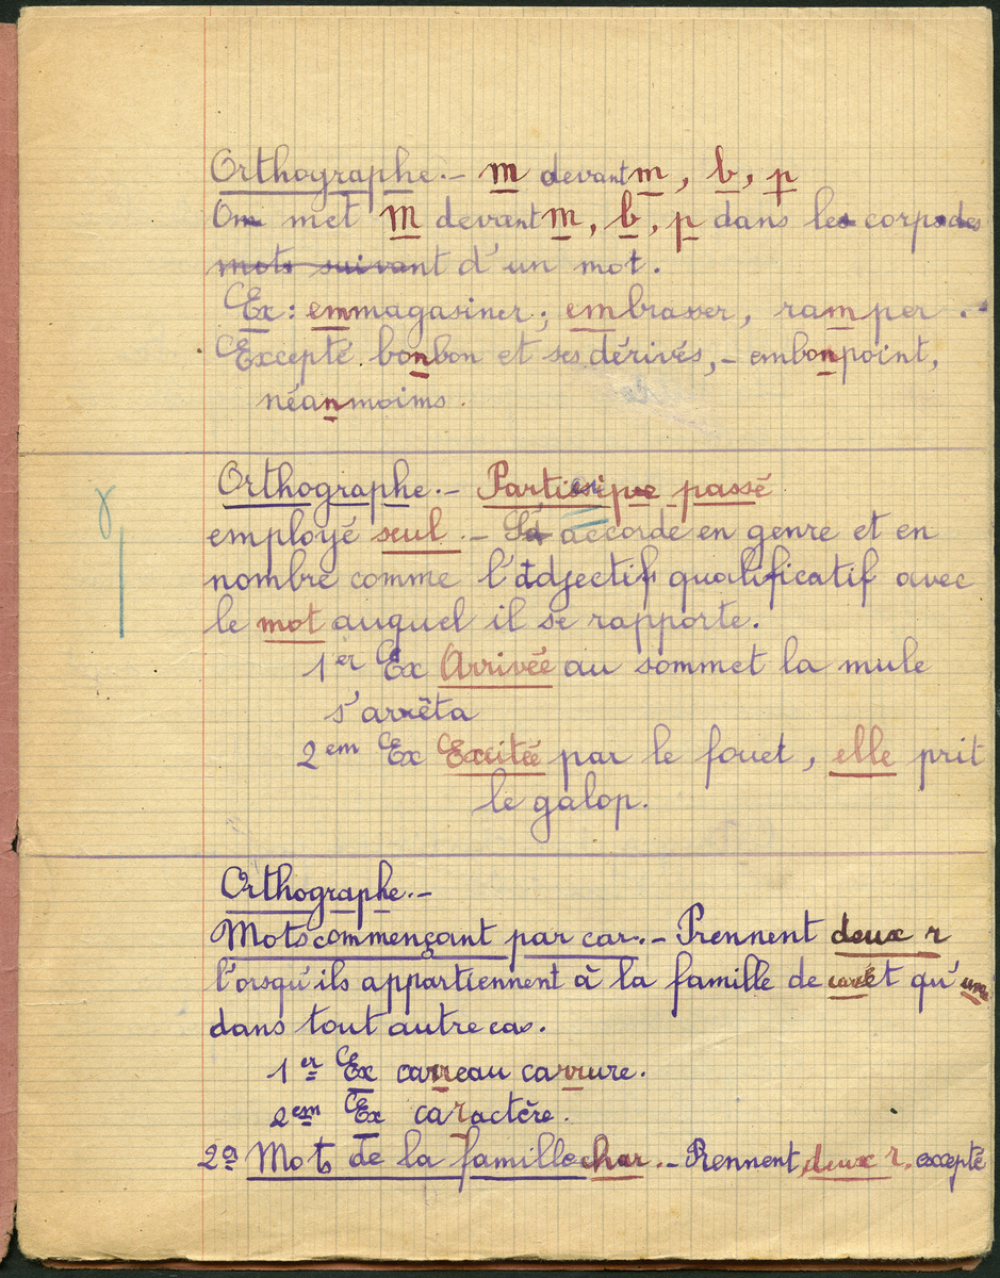 Orthographe.- m devant m, b, p
On met M devant m, b, p dans les corps des
mots suivant d'un mot.
Ex: emmagasiner; embrasser, ramper..
Excepté bonbon et ses dérivés,- embonpoint,
néanmoins.
Orthographe.- Participe passé
employé seul.- accorde en genre et en
nombre comme l'adjectif qualificatif avec
le mot auquel il se rapporte.
1er Ex Arrivée au sommet la mule
s'arrêta
2em Ex Excitée par le fouet, elle prit
le galop.
Orthographe.-
Mots commençant par car.- Prennent deux r
l'orsqu'ils appartiennent à la famille de carré et qu'un
dans tout autre cas.
1er Ex carreau carrure.
2em Ex caractère.
2a Mots de la famille char.- Prennent deux r, excepté